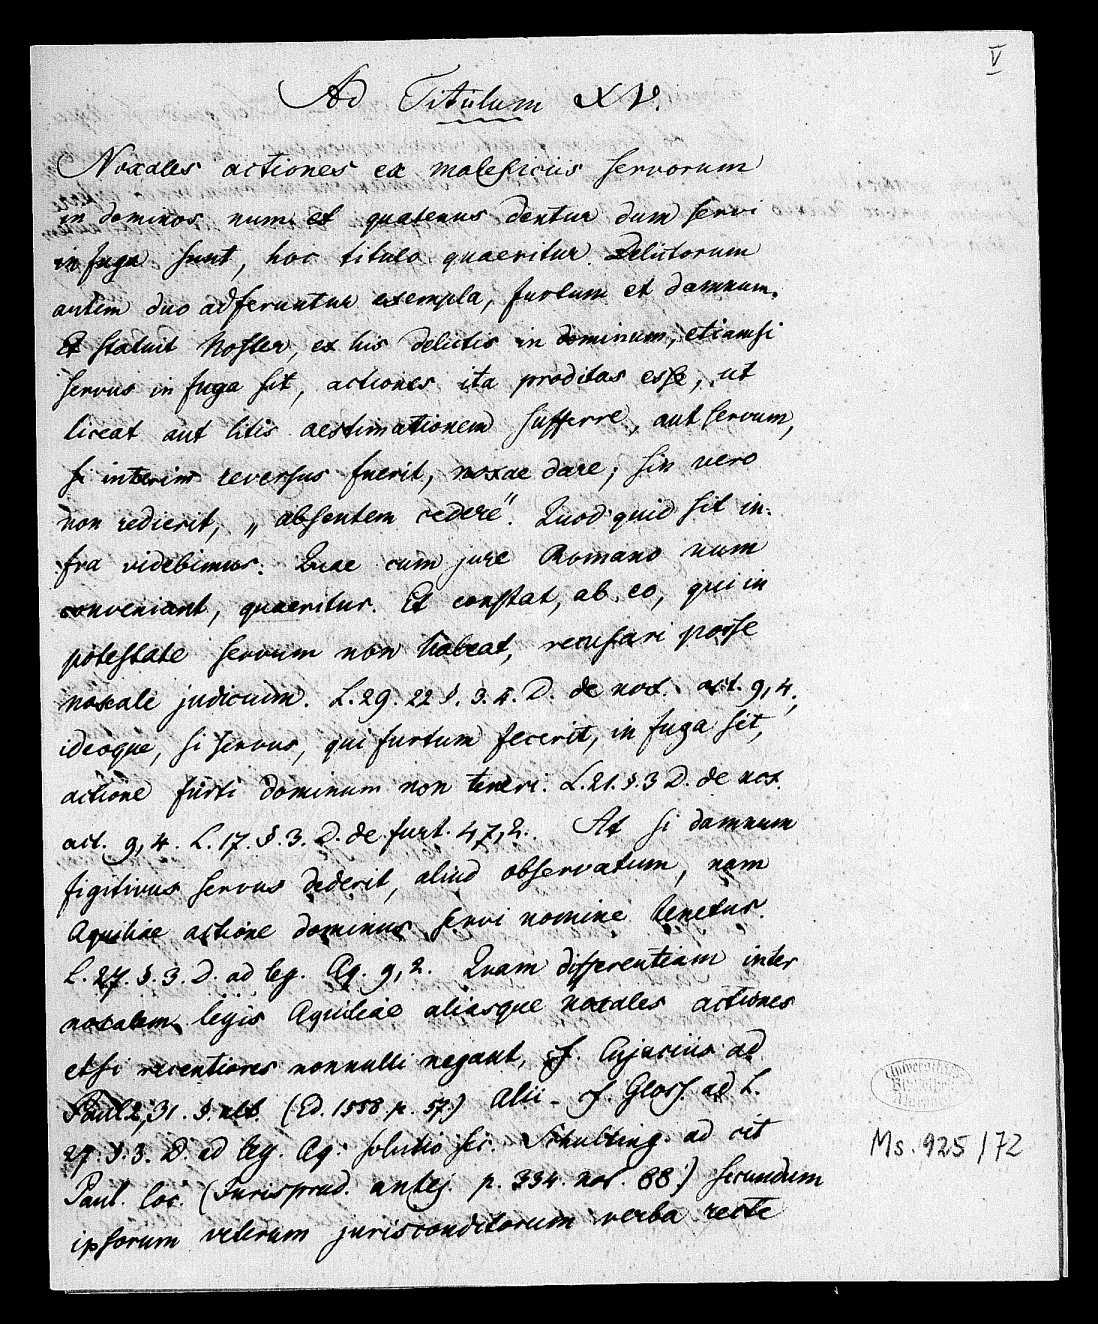 V
Ad Titulum XV.
Noxales actiones ex maleficiis servorum
in dominos num et quatenus dentur dum servi
in fuga sunt, hoc titulo quaeritur. Delictorum
autem duo adferuntur exempla, furtum et damnum.
Et statuit Noster, ex his delictis in dominum, etiamsi
servus in fuga sit, actiones ita proditas esse, ut
liceat aut litis aestimationem sufferre, aut servum,
si interim reversus fuerit, noxae dare; sin vero
non redierit, „absentem cedere“. Quod quid sit in-
fra videbimus. Quae cum jure Romano num
conveniant, quaeritur. Et constat, ab eo, qui in
potestate servum non habeat, recusari posse
noxale judicium. L. 29. 22 §. 3. 4. D. de nox. act. 9,4,
ideoque, si servus, qui furtum fecerit, in fuga sit,
actione furti dominum non teneri. L. 21. §. 3 D. de nox.
act. 9,4. L. 17. §. 3. D. de furt. 47,2. At si damnum
figitivus servus dederit, aliud observatum, nam
Aquiliae actione dominus servi nomine tenetur.
L. 27. §. 3 D. ad leg. Aq. 9,2. Quam differentiam inter
noxalem legis Aquiliae aliasque noxales actiones
etsi recentiores nonnulli negant, cf. Cujacius ad
Paul 2,31. § ult (Ed. 1558 p. 57.) Alii - cf. Gloss. ad L.
27. §. 3. D. ad leg. Aq. Schulting. ad cit
Paul. loc. (Jurisprud. antej. p. 334. not. 88.) secundum
ipsorum veterum jurisconditorum verba recte
Ms. 925/72